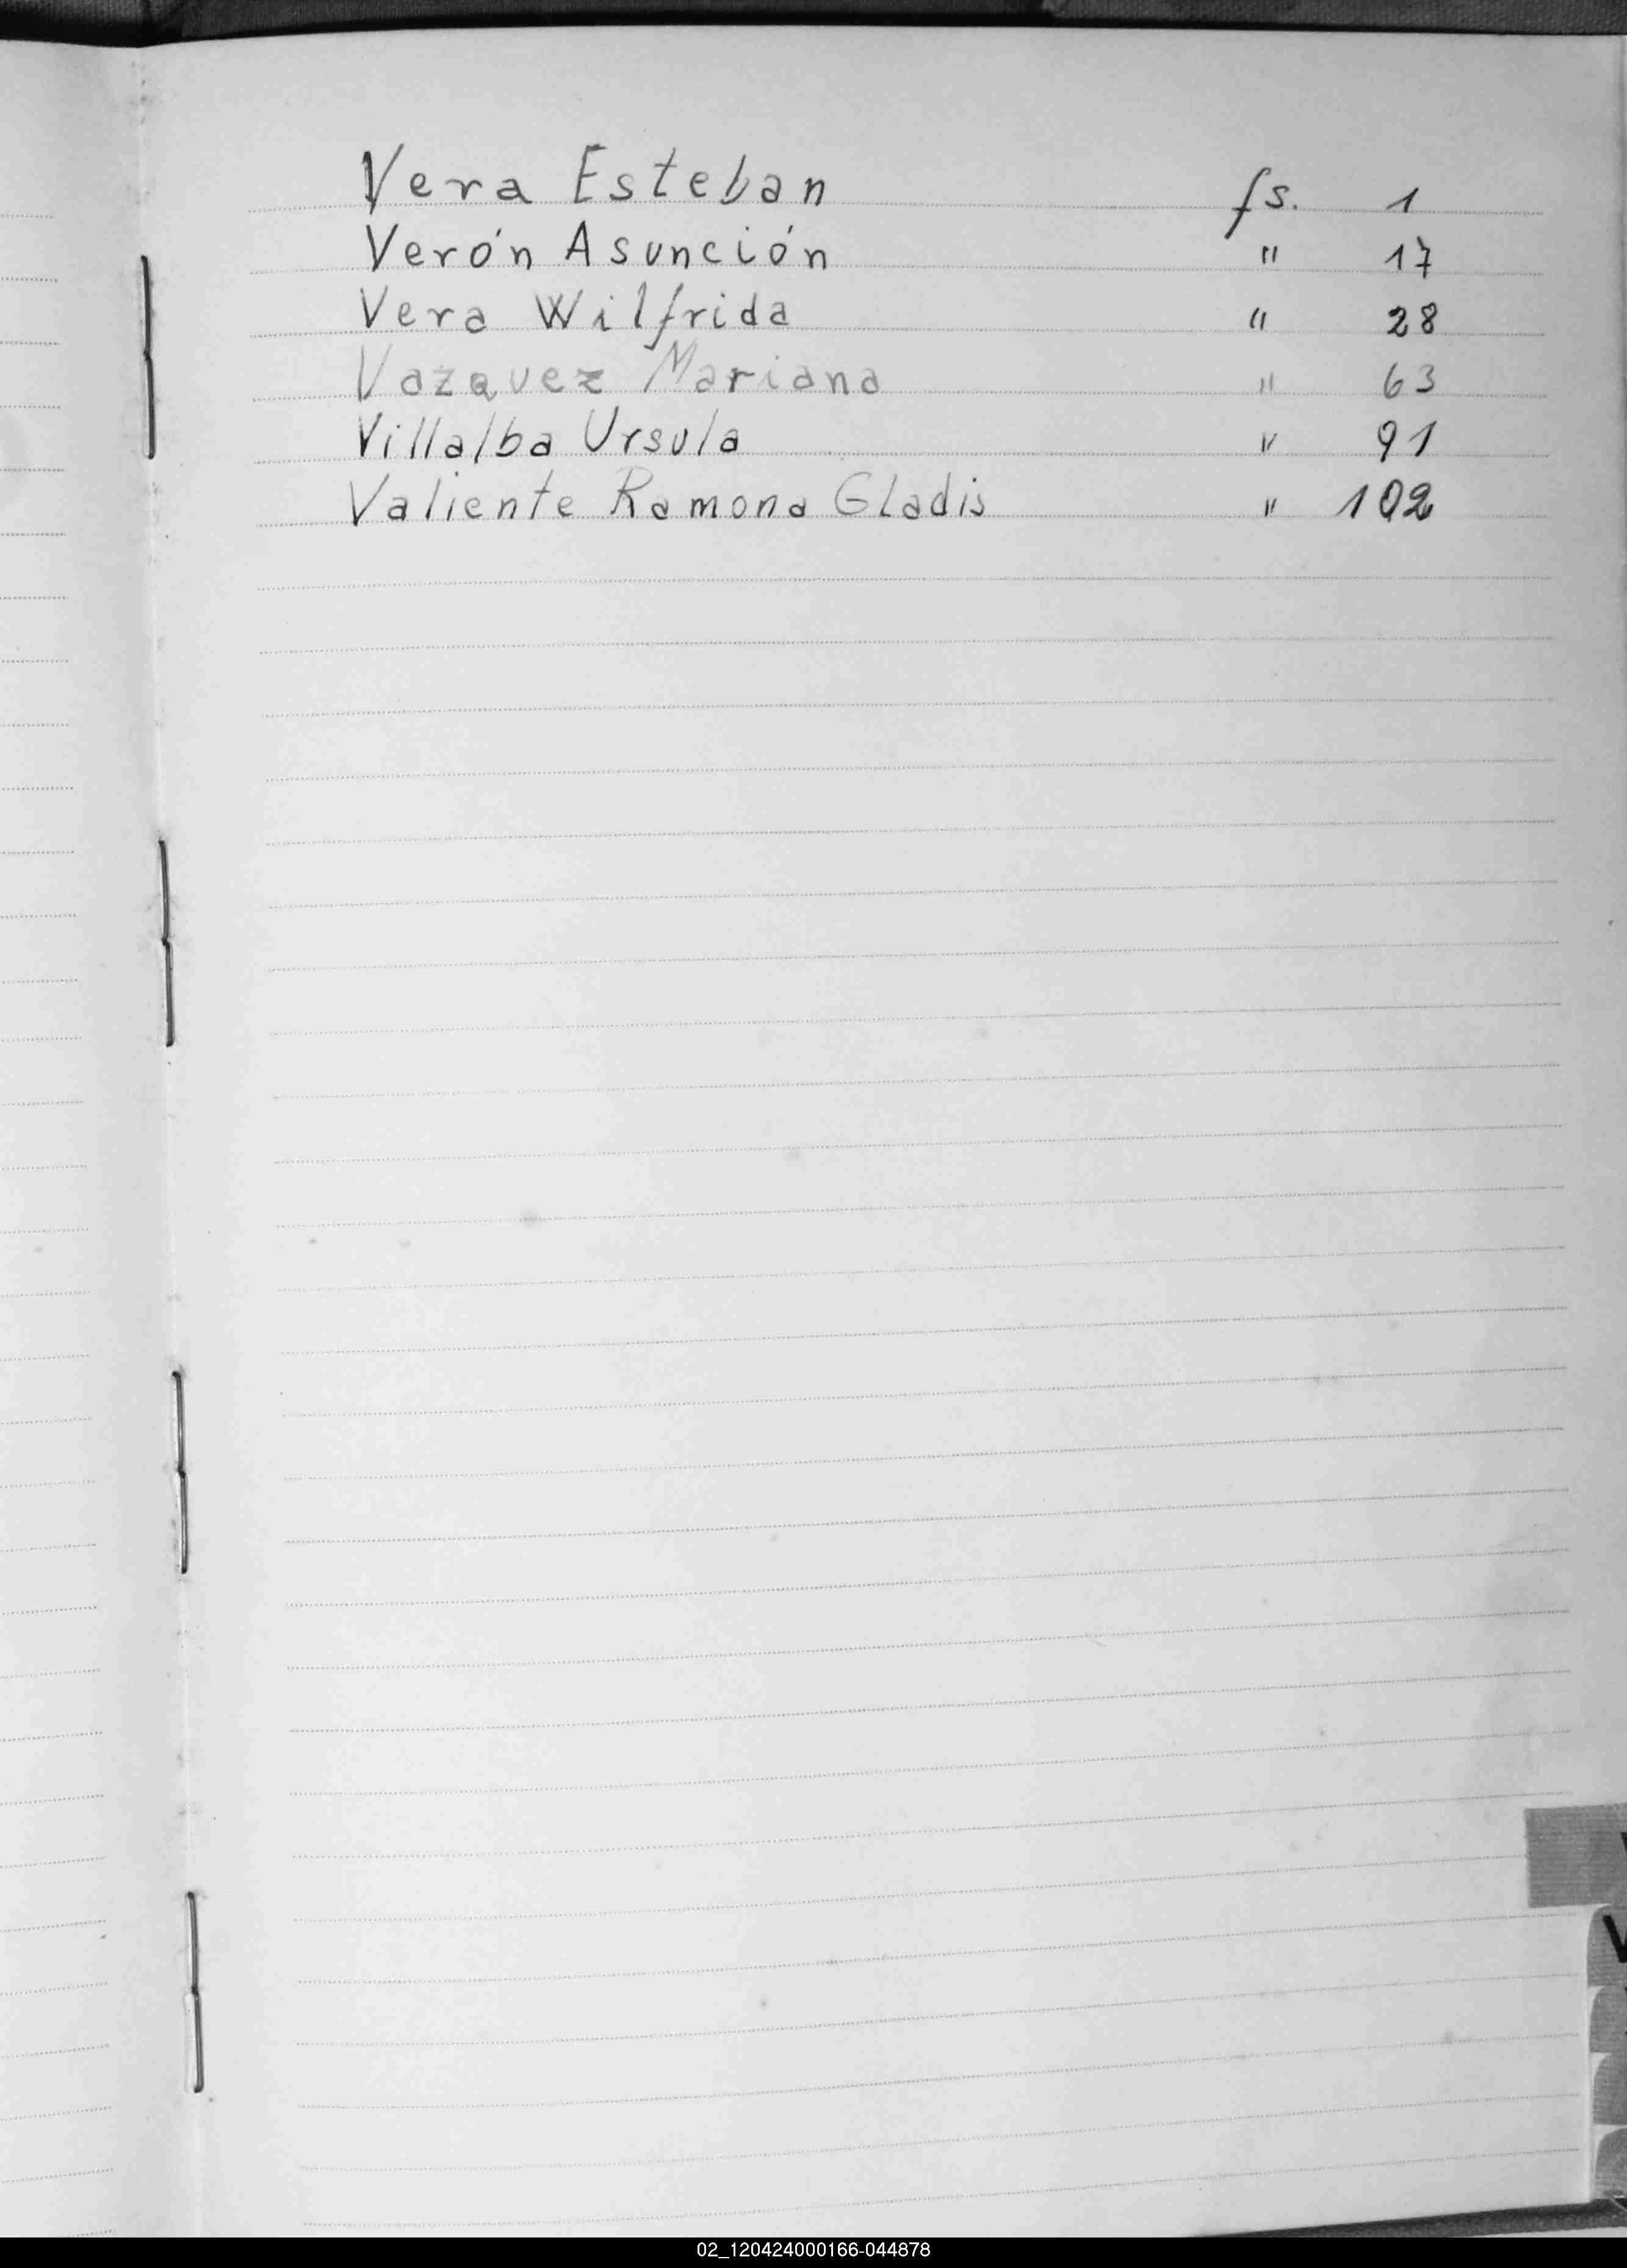 Vera Esteban fs. 1
Verón Asunción " 17
Vera Wilfrida " 28
Vazquez Mariana " 63
Villalba Ursula " 91
Valiente Ramona Gladis " 102
V
02_120424000166-044878